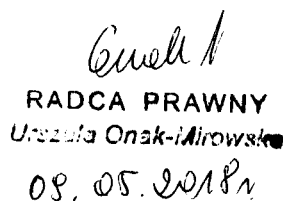 RADCA PRAWNY
Urszula Onak-Mirowska
09.05.2018r